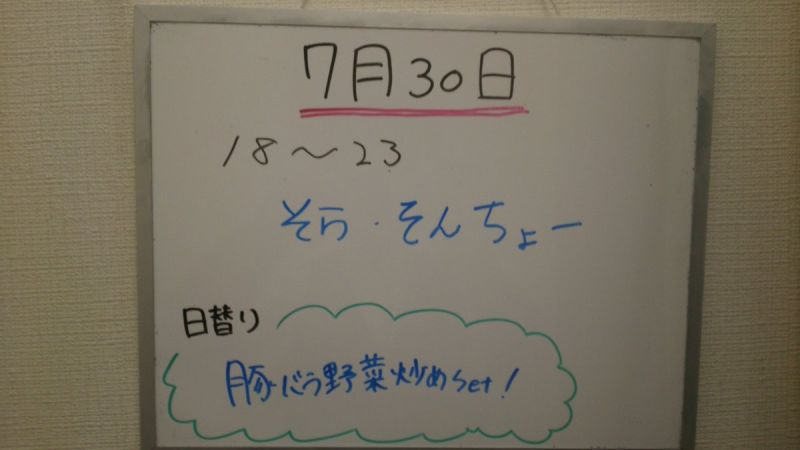 7月30日
18〜23
そら・そんちょー
日替り
豚バラ野菜炒めset!